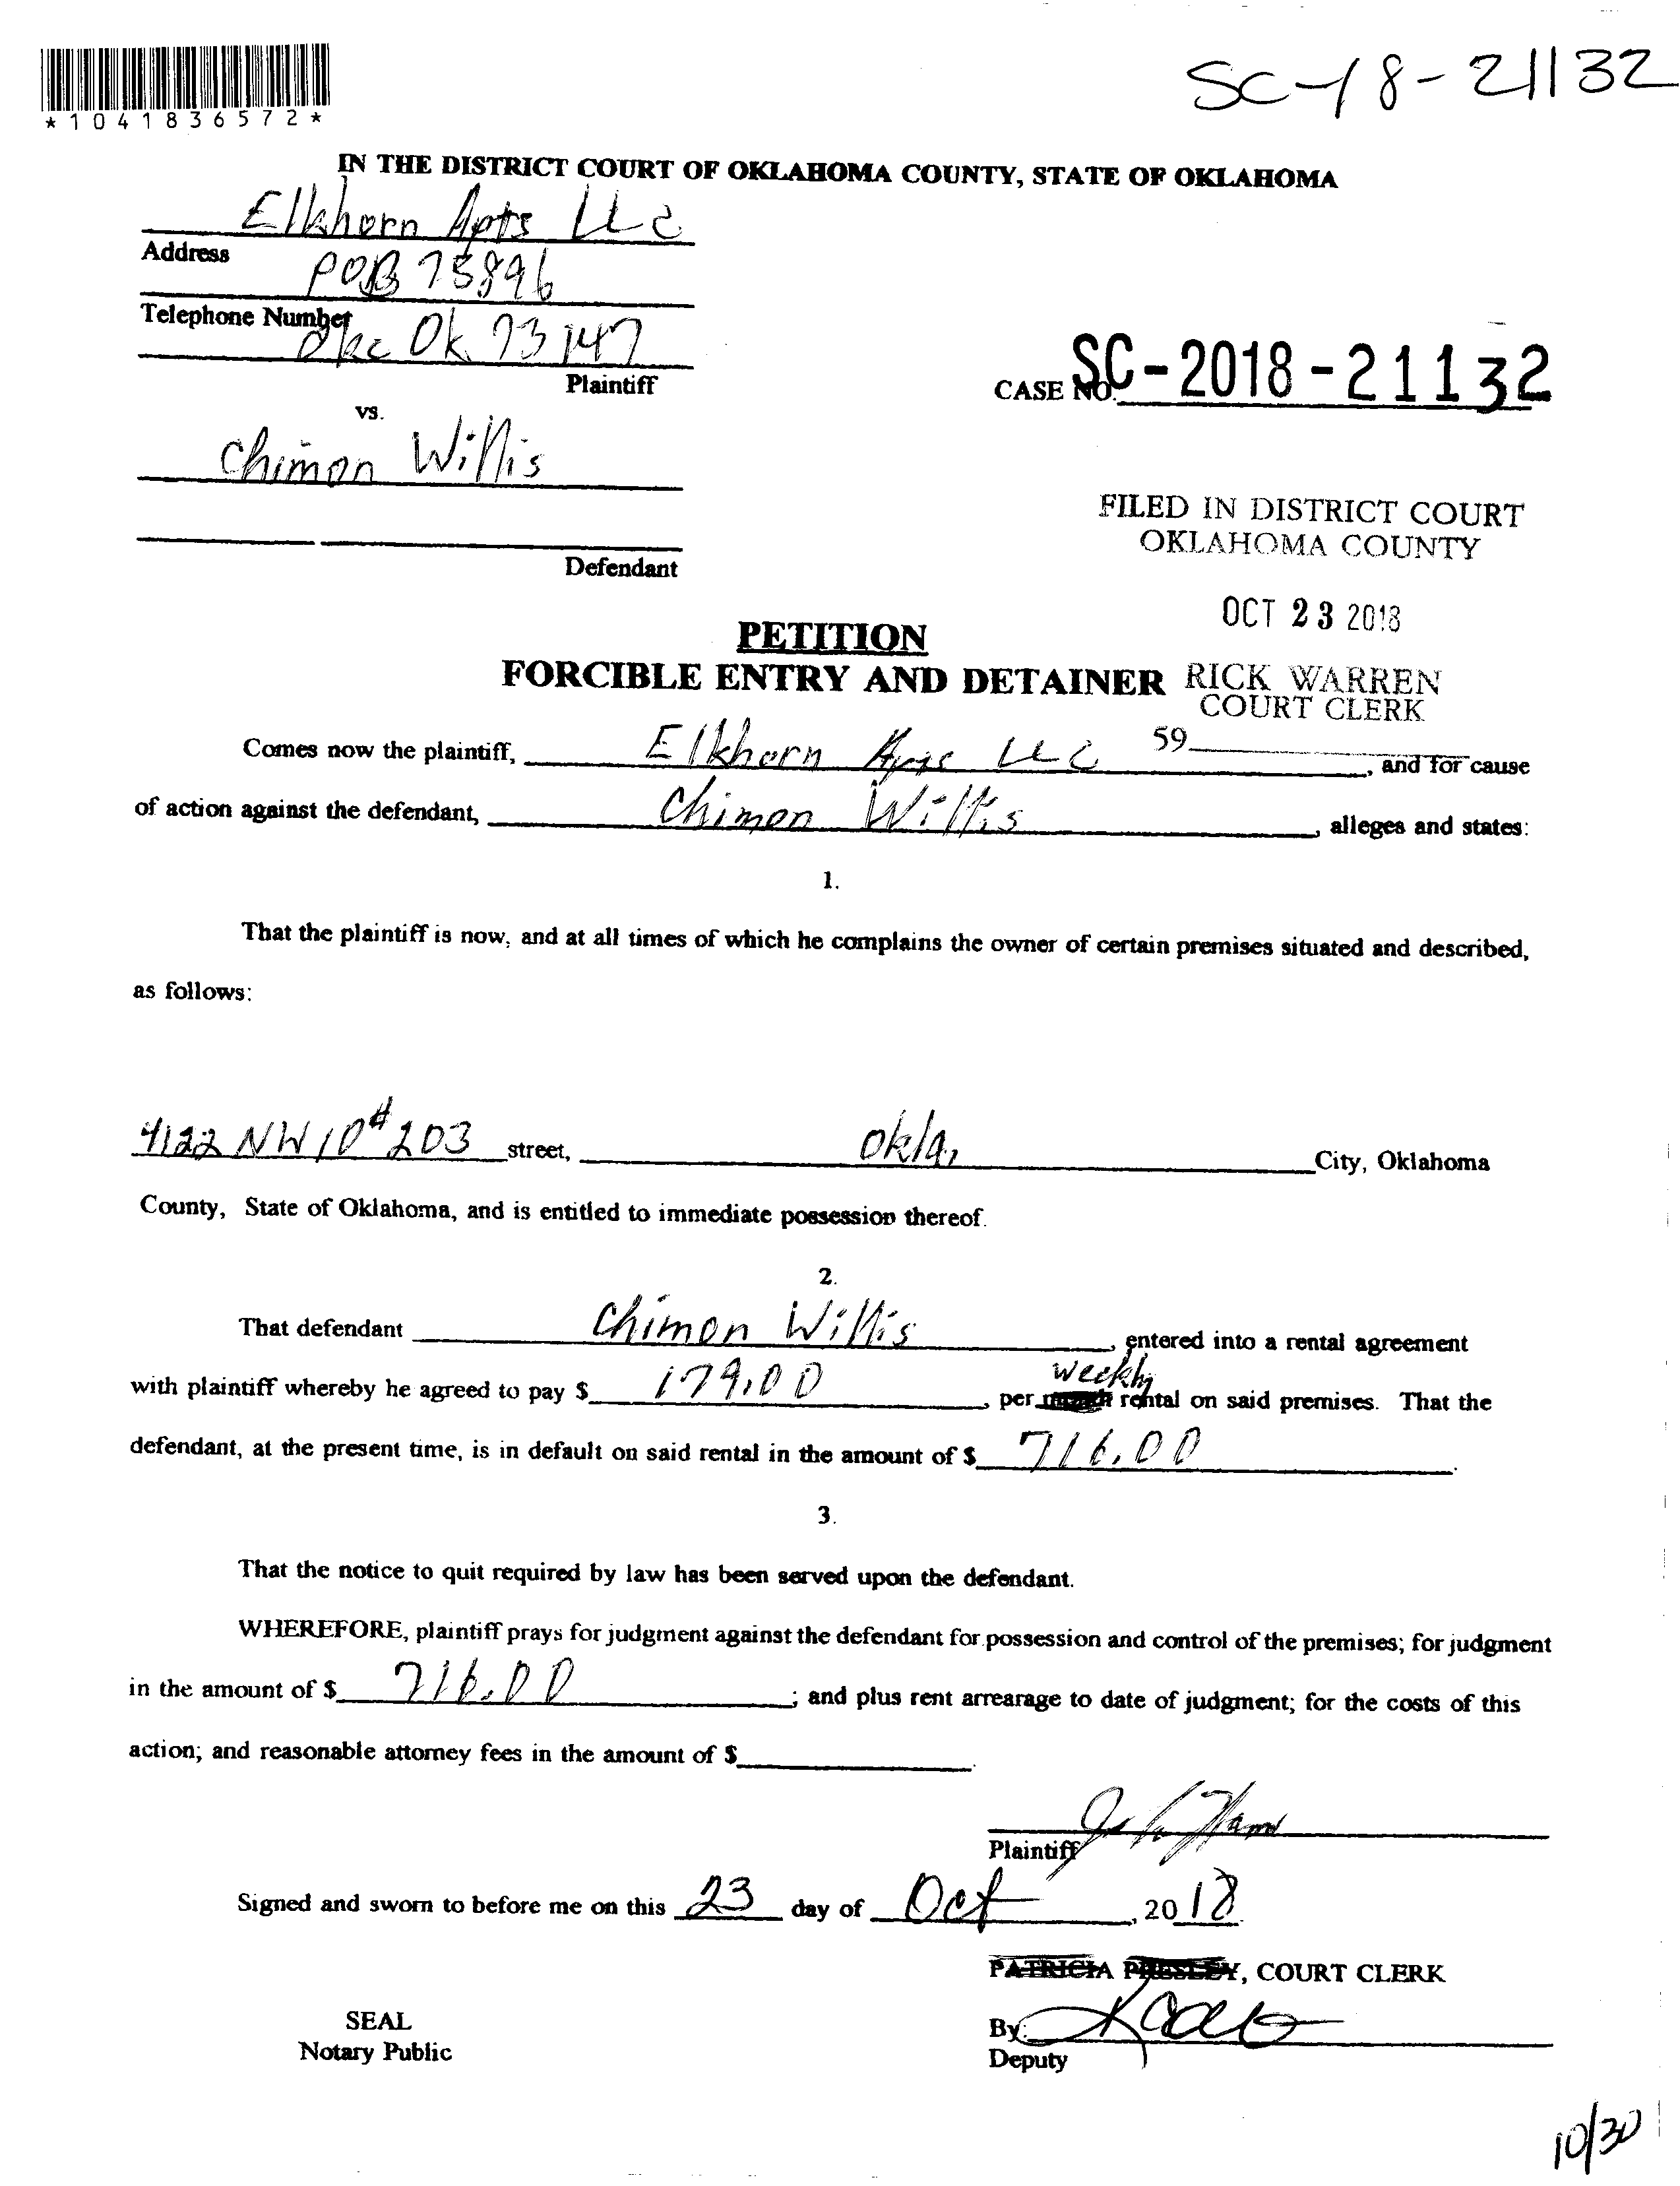 SC-18-21132
*1041836572*
IN THE DISTRICT COURT OF OKLAHOMA COUNTY, STATE OF OKLAHOMA
Elkhorn Apts LLC
Address
POB 75896
Telephone Number
Okc Ok 73147
Plaintiff
CASE NO. SC-2018-21132
vs.
Chimon Willis
FILED IN DISTRICT COURT
OKLAHOMA COUNTY
Defendant
OCT 23 2018
PETITION
FORCIBLE ENTRY AND DETAINER
RICK WARREN
COURT CLERK
59
Comes now the plaintiff, Elkhorn Apts LLC, and for cause
of action against the defendant, Chimon Willis, alleges and states:
1.
That the plaintiff is now, and at all times of which he complains the owner of certain premises situated and described,
as follows:
4122 NW 10 # 203 street, Okla, City, Oklahoma
County, State of Oklahoma, and is entitled to immediate possession thereof.
2.
That defendant Chimon Willis, entered into a rental agreement
with plaintiff whereby he agreed to pay $ 179.00, per month weekly rental on said premises. That the
defendant, at the present time, is in default on said rental in the amount of $ 716.00.
3.
That the notice to quit required by law has been served upon the defendant.
WHEREFORE, plaintiff prays for judgment against the defendant for possession and control of the premises; for judgment
in the amount of $ 716.00; and plus rent arrearage to date of judgment; for the costs of this
action; and reasonable attorney fees in the amount of $.
Plaintiff
Signed and sworn to before me on this 23 day of Oct, 2018.
PATRICIA PRESLEY, COURT CLERK
SEAL
Notary Public
By:
Deputy
10/30